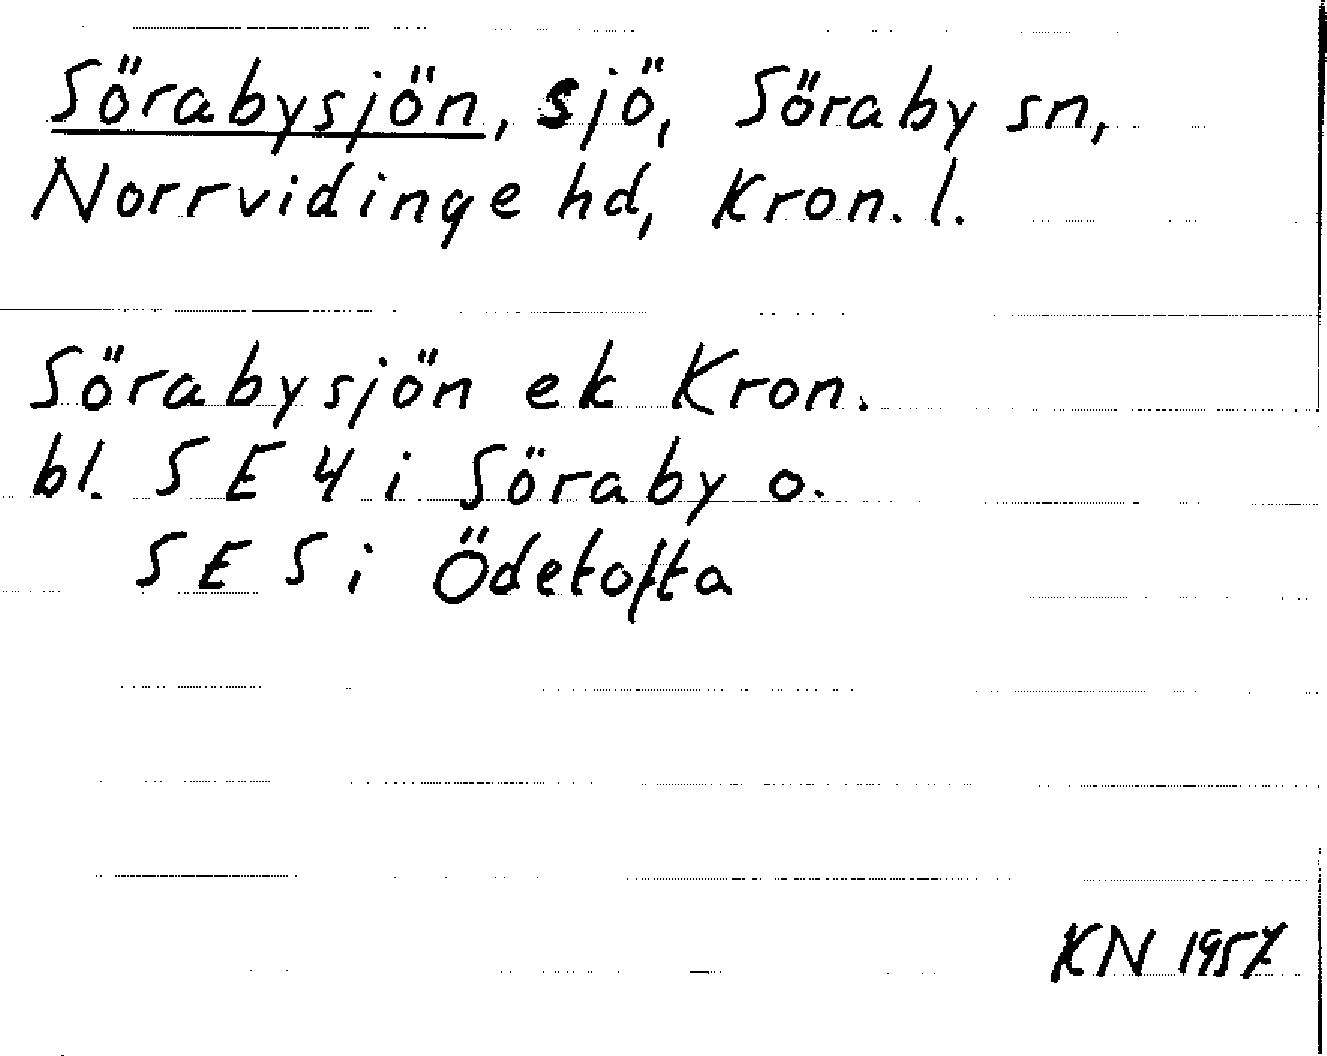 Sörabysjön, sjö, Söraby sn,
Norrvidinge hd, Kron. l.
Sörabysjön ek Kron.
bl. SE 4 i Söraby o.
SE 5 i Ödetofta
KN 1957